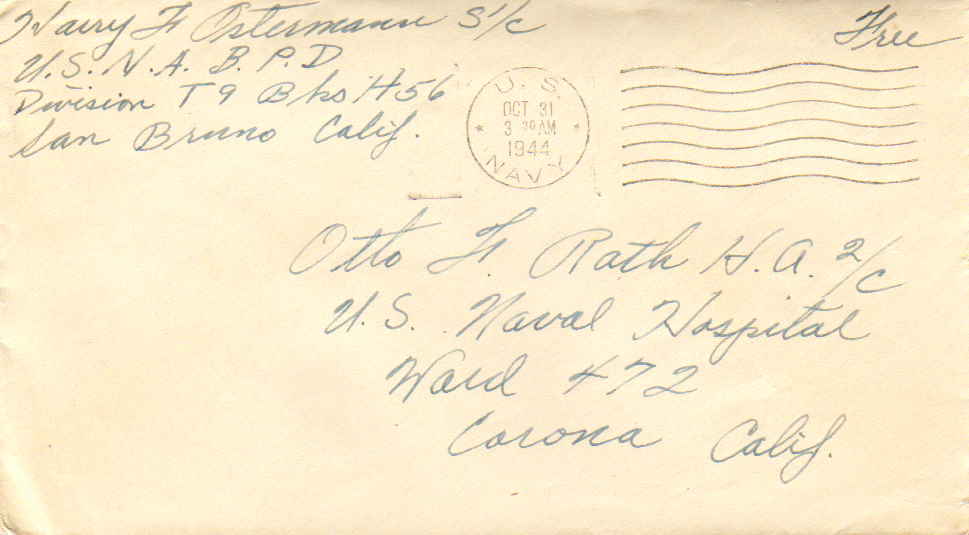 Harry F Ostermann S 1/c
U.S.N.A.B.P.D
Division T9 Bks H56
San Bruno Calif.
Free
U.S.
OCT 31
3 30 AM
1944
NAVY
Otto F. Rath H.A. 2/c
U.S. Naval Hospital
Ward 472
Corona Calif.